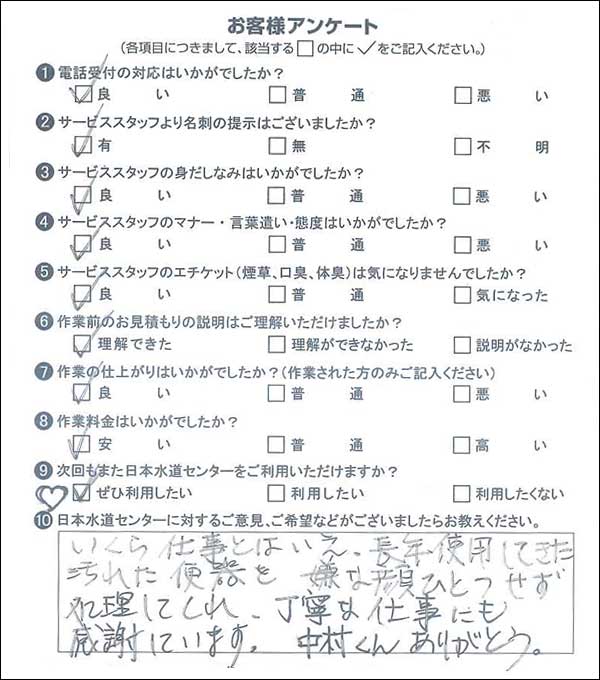 お客様アンケート
(各項目につきまして、該当する□の中に✓をご記入ください。)
❶ 電話受付の対応はいかがでしたか?
☑良い □普通 □悪い
❷ サービススタッフより名刺の提示はございましたか?
☑有 □無 □不明
❸ サービススタッフの身だしなみはいかがでしたか?
☑良い □普通 □悪い
❹ サービススタッフのマナー・言葉遣い・態度はいかがでしたか?
☑良い □普通 □悪い
❺ サービススタッフのエチケット(煙草、口臭、体臭)は気になりませんでしたか?
☑良い □普通 □気になった
❻ 作業前のお見積もりの説明はご理解いただけましたか?
☑理解できた □理解ができなかった □説明がなかった
❼ 作業の仕上がりはいかがでしたか?(作業された方のみご記入ください)
☑良い □普通 □悪い
❽ 作業料金はいかがでしたか?
☑安い □普通 □高い
❾ 次回もまた日本水道センターをご利用いただけますか?
♡☑ぜひ利用したい □利用したい □利用したくない
❿ 日本水道センターに対するご意見、ご希望などがございましたらお教えください。
いくら仕事とはいえ、長年使用してきた
汚れた便器を嫌な顔ひとつせず
処理してくれ、丁寧な仕事にも
感謝しています。 中村くんありがとう。